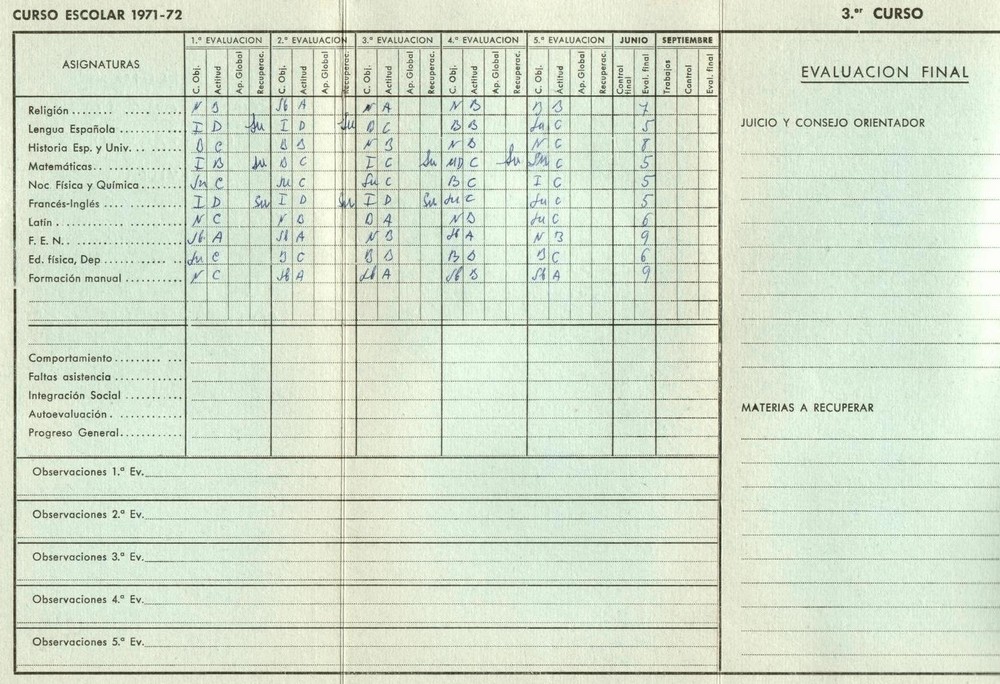 CURSO ESCOLAR 1971-72
3.er CURSO
ASIGNATURAS
1.ª EVALUACION 2.ª EVALUACION 3.ª EVALUACION 4.ª EVALUACION 5.ª EVALUACION JUNIO SEPTIEMBRE
C. Obj. Actitud Ap. Global Recuperac. C. Obj. Actitud Ap. Global Recuperac. C. Obj. Actitud Ap. Global Recuperac. C. Obj. Actitud Ap. Global Recuperac. C. Obj. Actitud Ap. Global Recuperac. Control final Eval. final Trabajos Control Eval. final
Religión N B Sb A N A N B B B 7
Lengua Española I D Su I D Su B C B B Su C 5
Historia Esp. y Univ. B C B B N B N B N C 8
Matemáticas I B Su B C I C Su MD C Su C 5
Noc. Física y Química Su C Su C Su C B C I C 5
Francés-Inglés I D Su I D Su I D Su Su C Su C 5
Latín N C N B B A N B Su C 6
F. E. N. Sb A Sb A N B Sb A N B 9
Ed. física, Dep Su C B C B B B B B C 6
Formación manual N C Sb A Sb A Sb B Sb A 9
Comportamiento
Faltas asistencia
Integración Social
Autoevaluación
Progreso General
Observaciones 1.ª Ev.
Observaciones 2.ª Ev.
Observaciones 3.ª Ev.
Observaciones 4.ª Ev.
Observaciones 5.ª Ev.
EVALUACION FINAL
JUICIO Y CONSEJO ORIENTADOR
MATERIAS A RECUPERAR